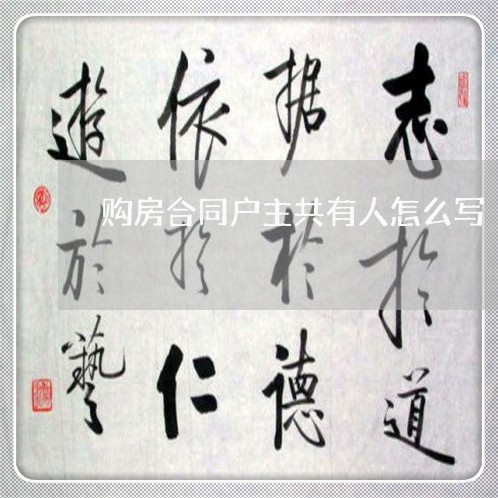 志於道
据於德
依於仁
遊於藝
购房合同户主共有人怎么写